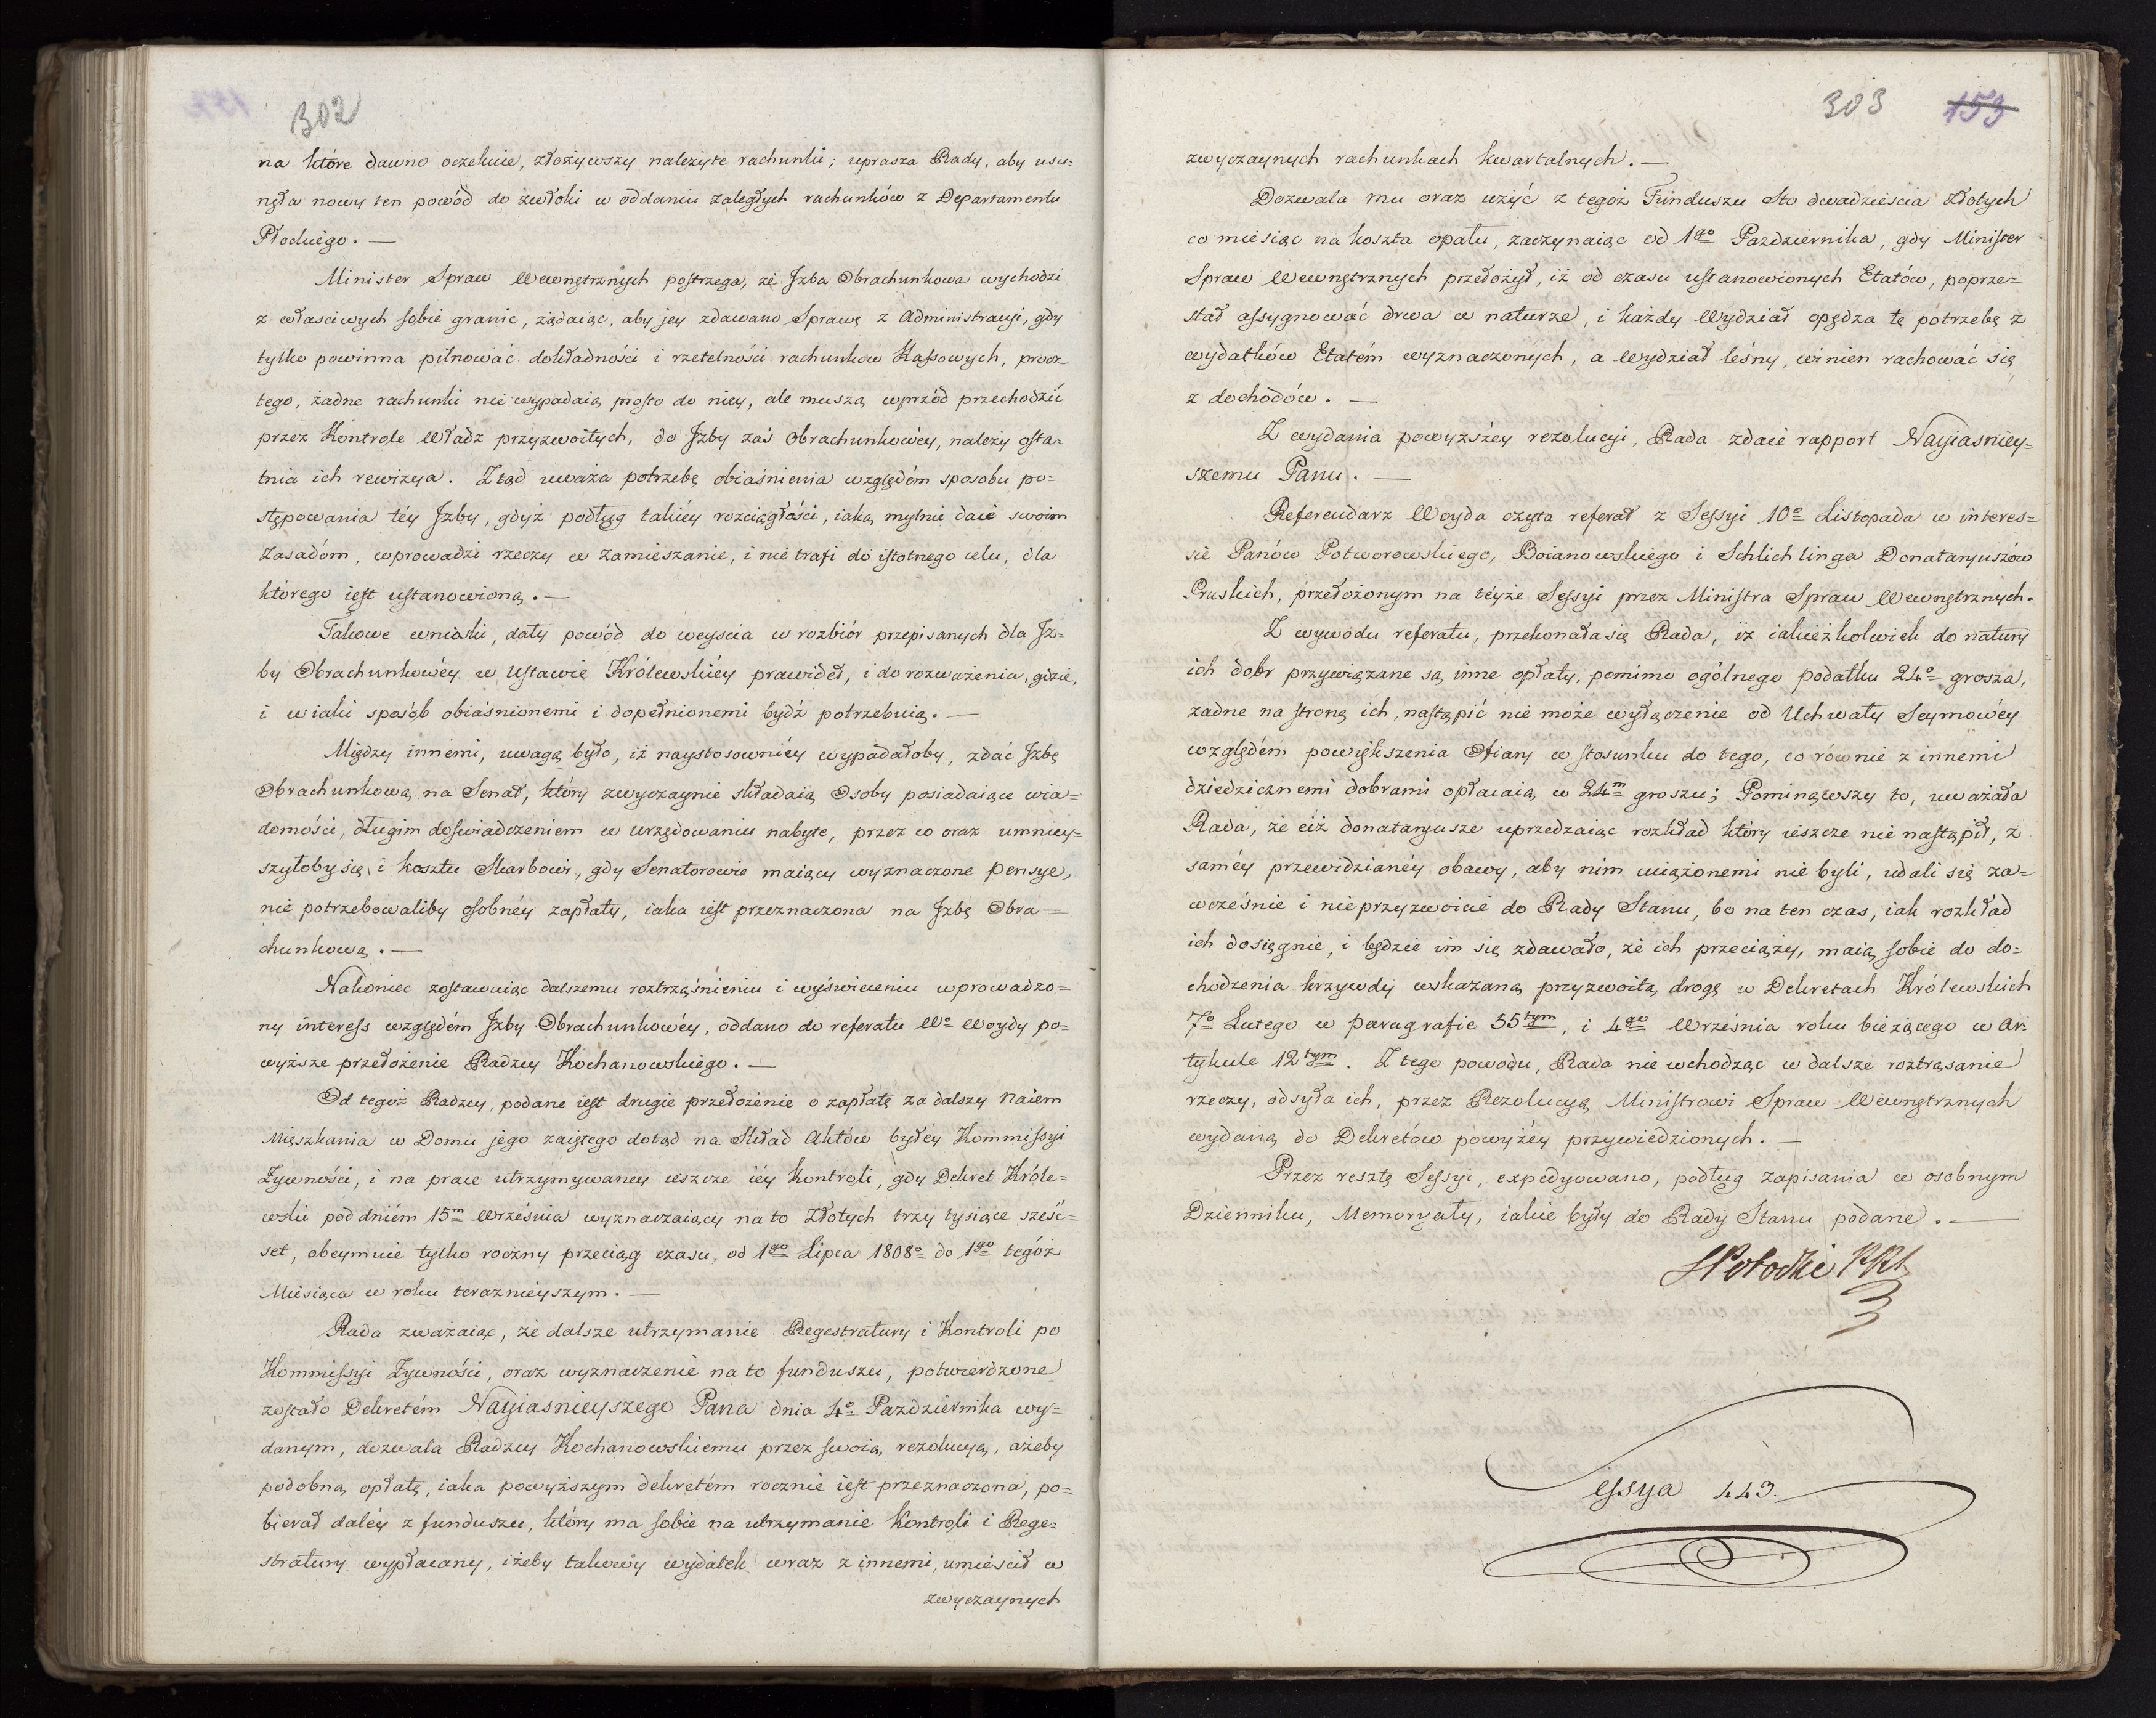 302
na które dawno oczekuie, złożywszy należyte rachunki; uprasza Rady, aby usu=
nęła nowy ten powód do zwłoki w oddaniu zaległych rachunków z Departamentu
Płockiego. —
Minister Spraw Wewnętrznych postrzega, że Jzba Obrachunkowa wychodzi
z własciwych sobie granic, żądaiąc, aby jey zdawano Sprawę z Administracyi, gdy
tylko powinna pilnować dokładności i rzetelności rachunkow Kassowych, procz
tego, żadne rachunki nie wypadaią prosto do niey, ale muszą wprzód przechodzić
przez Kontrole Władz przyzwoitych, do Jzby zaś Obrachunkowéy, należy osta-
tnia ich rewizya. Ztąd uważa potrzebę obiaśnienia względém sposobu po=
stępowania téy Jzby, gdyż podług takiéy rozciągłości, iaką mylnie daie swoim
Zasadóm, wprowadzi rzeczy w zamieszanie, i nie trafi do istotnego celu, dla
którego iest ustanowioną. —
Takowe wnioski, dały powód do weyscia w rozbiór przepisanych dla Jz=
by Obrachunkowéy w Ustawie Królewskiéy prawideł, i do rozważenia, gdzie,
i w iaki sposób obiaśnionemi i dopełnionemi bydź potrzebuią. —
Między innemi, uwagą było, iż naystosowniéy wypadałoby, zdać Jzbę
Obrachunkową na Senat, który zwyczaynie składaią Osoby posiadaiące wia=
domości, długim doświadczeniem w urzędowaniu nabyte, przez co oraz umniey=
szyłoby się i kosztu Skarbowi, gdy Senatorowie maiący wyznaczone pensye,
nie potrzebowaliby osobnéy zapłaty, iaka iest przeznaczona na Jzbę Obra=
chunkową. —
Nakoniec zostawuiąc dalszemu roztrząśnieniu i wyświeceniu wprowadzo=
ny interess względém Jzby Obrachunkowéy, oddano do referatu Wo Woydy po=
wyższe przełożenie Radzcy Kochanowskiego. —
Od tegoż Radzcy, podane iest drugie przełożenie o zapłatę za dalszy naiem
Mieszkania w Domu jego zaiętego dotąd na Skład Aktów byłéy Kommissyi
Żywności, i na prace utrzymywaney ieszcze iéy Kontroli, gdy Dekret Króle=
wski pod dniém 15m Września wyznaczaiący na to Złotych trzy tysiące sześć=
set, obeymuie tylko roczny przeciąg czasu, od 1go Lipca 1808o do 1go tegóż
Miesiąca w roku teraznieyszym. —
Rada zważaiąc, że dalsze utrzymanie Regestratury i Kontroli po
Kommissyi Żywności, oraz wyznaczenie na to funduszu, potwierdzone
zostało Dekretém Nayiasnieyszego Pana dnia 4o Pazdziernika wy=
danym, dozwala Radzcy Kochanowskiemu przez swoią rezolucyą, ażeby
podobną opłatę, iaka powyższym dekretém rocznie iest przeznaczona, po=
bierał daléy z funduszu, który ma sobie na utrzymanie Kontroli i Rege=
stratury wypłacany, iżeby takowy wydatek wraz z innemi, umieścił w
zwyczaynych
303 153
zwyczaynych rachunkach kwartalnych. —
Dozwala mu oraz użyć z tegoż Funduszu Sto dwadzieścia Złotych
co miesiąc na koszta opału, zaczynaiąc od 1go Pazdziernika, gdy Minister
Spraw Wewnętrznych przełożył, iż od czasu ustanowionych Etatów, poprze=
stał assygnować drwa w naturze, i każdy Wydział opędza tę potrzebę z
wydatków Etatém wyznaczonych, a wydział leśny, winien rachować się
z dochodów. —
Z wydania powyższéy rezolucyi, Rada zdaie rapport Nayiasniey=
szemu Panu. —
Referendarz Woyda czyta referat z Sessyi 10o Listopada w interes=
sie Panów Potworowskiego, Boianowskiego i Schlichtinga Donataryuszów
Pruskich, przełożonym na téyże Sessyi przez Ministra Spraw Wewnętrznych.
Z wywodu referatu, przekonała się Rada, iż iakieżkolwiek do natury
ich dobr przywiązane są inne opłaty, pomimo ogólnego podatku 24o grosza,
żadne na stronę ich, nastąpić nie może wyłączenie od Uchwały Seymowéy
względém powiększenia Ofiary w stosunku do tego, co równie z innemi
dziedzicznemi dobrami opłacaią w 24m groszu; Pominąwszy to, uważała
Rada, że ciż donataryusze uprzedzaiąc rozkład który ieszcze nie nastąpił, z
saméy przewidzianéy obawy, aby nim uciążonemi nie byli, udali się za=
wcześnie i nieprzyzwoicie do Rady Stanu, bo na ten czas, iak rozkład
ich dosięgnie, i będzie im się zdawało, że ich przeciąży, maią sobie do do=
chodzenia krzywdy wskazaną przyzwoitą drogę w Dekretach Królewskich
7o Lutego w paragrafie 55tym, i 4go Września roku bieżącego w Ar=
tykule 12tym. Z tego powodu, Rada nie wchodząc w dalsze roztrąsanie
rzeczy, odsyła ich, przez Rezolucyą Ministrowi Spraw Wewnętrznych
wydaną do Dekretów powyżéy przywiedzionych. —
Przez resztę Sessyi, expedyowano, podług zapisania w osobnym
Dzienniku, Memoryały, iakie były do Rady Stanu podane. —
SPotocki PRS
Sessya 443.